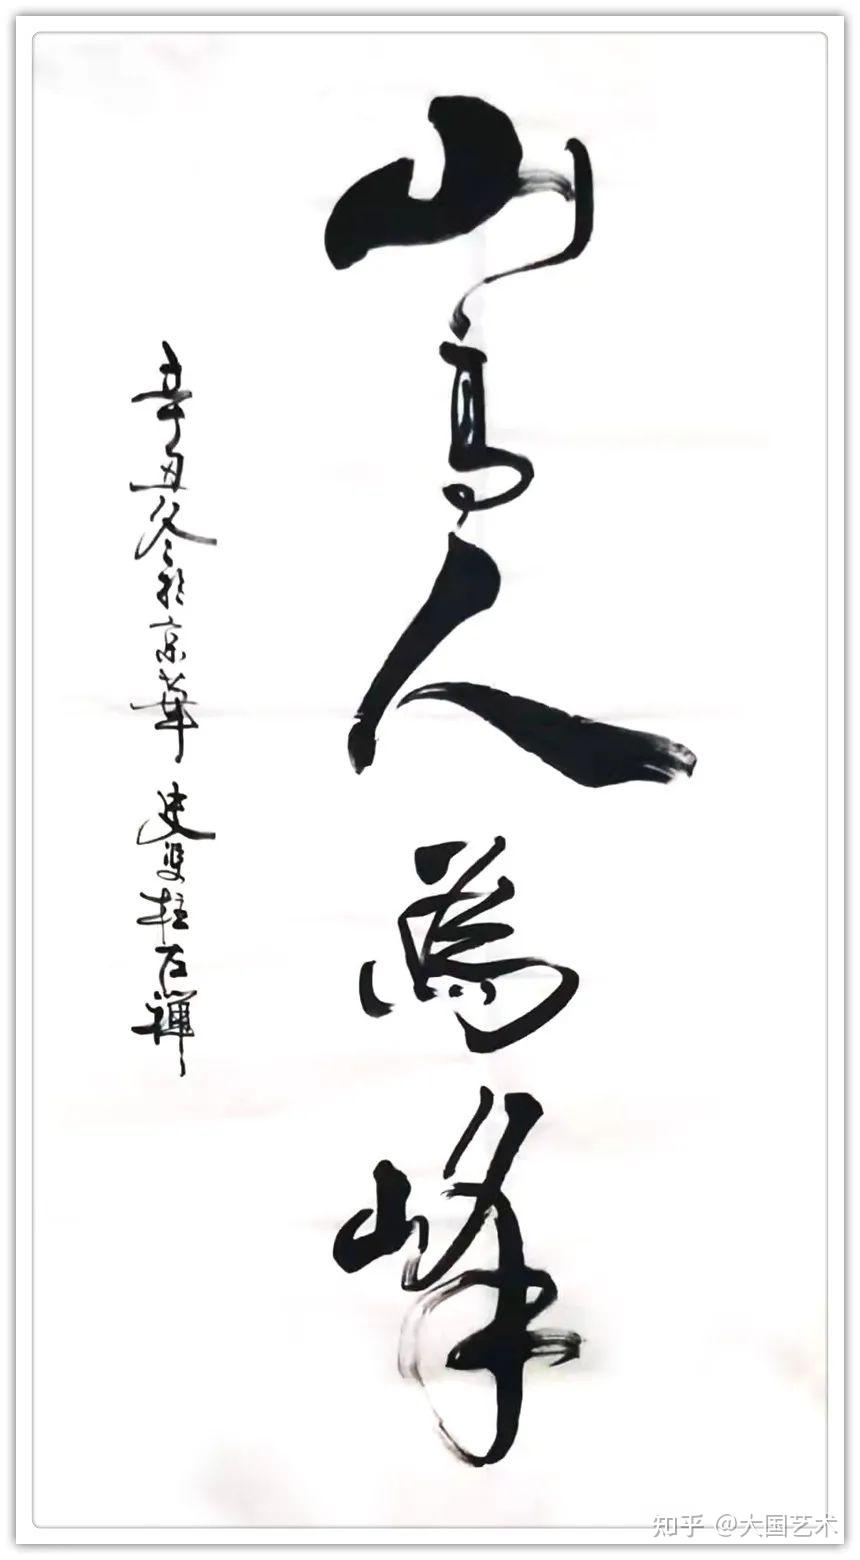 山高人為峰
辛丑冬於京華 史雙柱左禪
知乎 @大国艺术